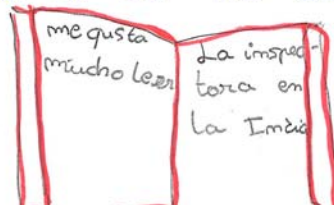 me gusta
mucho leer
La inspec-
tora en
la India